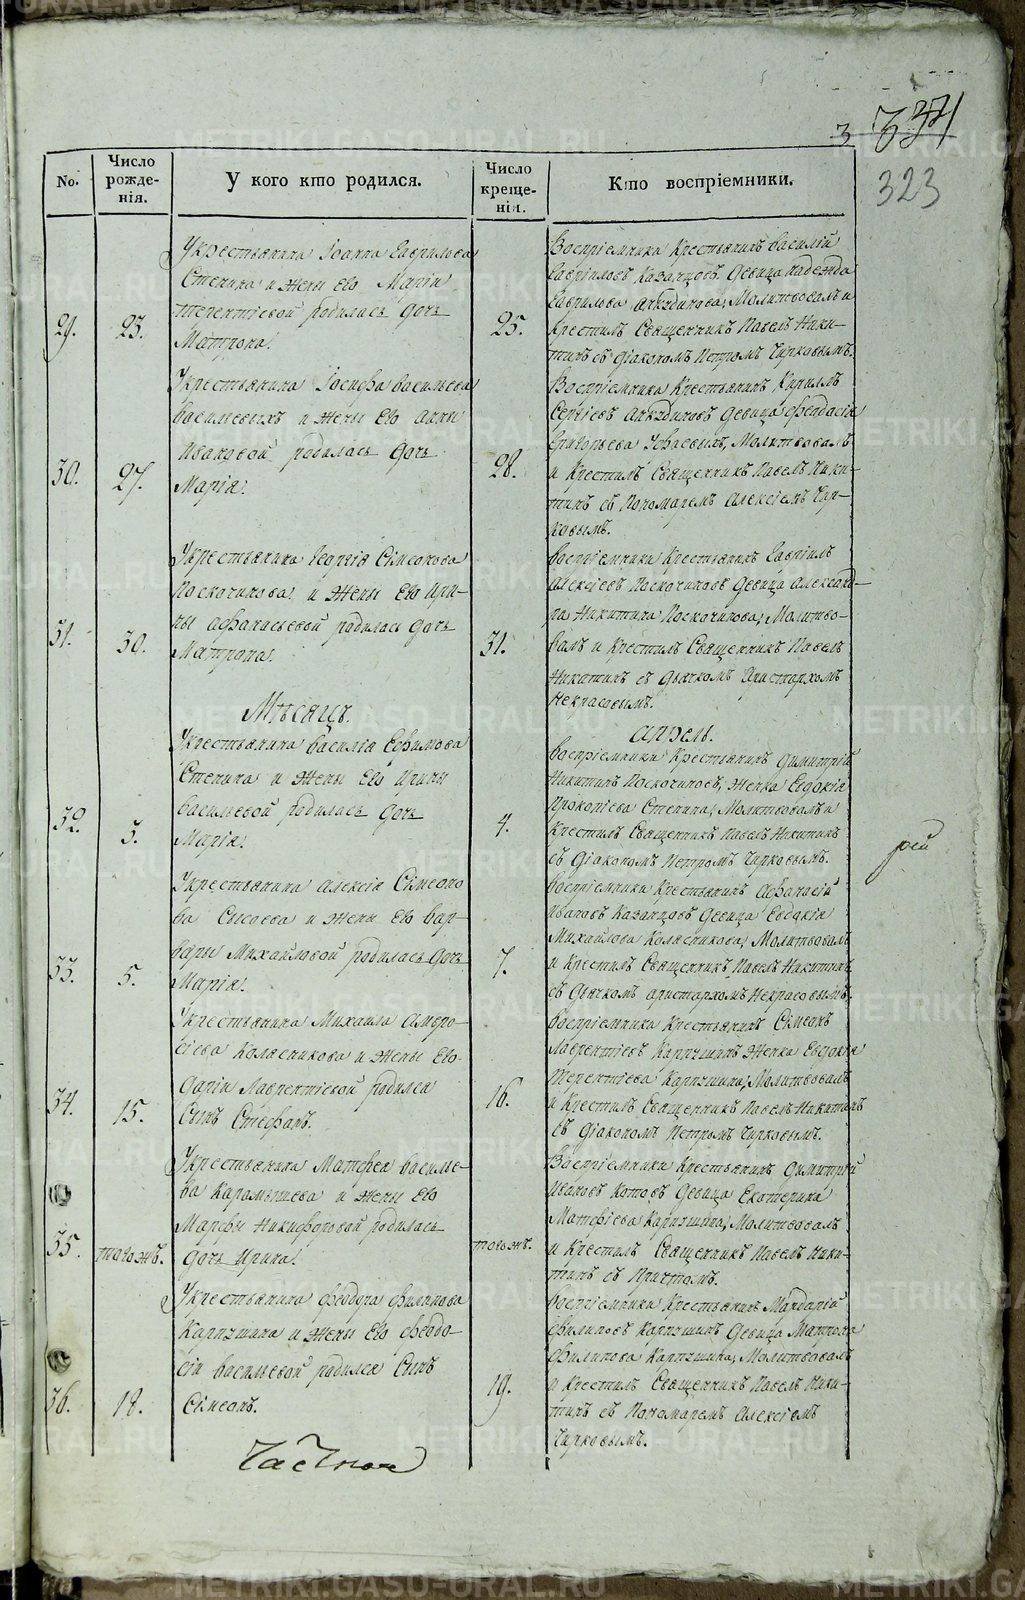 3 371
323
No.
Число рожде-нія.
У кого кто родился.
Число креще-нія.
Кто воспріемники.
29.
23.
У крестьянина Іоанна Гаврилова
Степина и жены его Маріи
Терентіевой родилась дочь
Матрона.
25.
Воспріемники Крестьянинъ Василій
Гавриловъ Казанцовъ, Девица Надежда
Гаврилова Анкудинова; Молитвовалъ и
Крестилъ Священникъ Павелъ Ники-
тинъ съ Діакономъ Петромъ Чирковымъ.
30.
27.
У крестьянина Іосифа Васильева
Васильевыхъ и жены его Анны
Ивановой родилась дочь
Марія.
28.
Воспріемники Крестьянинъ Кириллъ
Сергіевъ Анкудиновъ Девица Феодосія
Григорьева, Молитвовалъ
и Крестилъ Священникъ Павелъ Ники-
тинъ съ Пономаремъ Алексіемъ Чир-
ковымъ.
31.
30.
У крестьянина Георгія Сімеонова
Поскочинова и жены его Ири-
ны Афанасьевой родилась дочь
Матрона.
31.
Воспріемники Крестьянинъ Гавріилъ
Алексіевъ Поскочиновъ Девица Александ-
ра Никитина Поскочинова; Молитво-
валъ и Крестилъ Священникъ Павелъ
Никитинъ съ Дьячкомъ Аристархомъ
Некрасовымъ.
Мѣсяцъ.
Апрель.
32.
3.
У крестьянина Василія Ефимова
Степина и жены его Ирины
Васильевой родилась дочь
Марія.
4.
Воспріемники Крестьянинъ Димитрій
Никитинъ Поскочиновъ, Женка Евдокія
Прокопіева Степина; Молитвовалъ и
Крестилъ Священникъ Павелъ Никитинъ
съ Діакономъ Петромъ Чирковымъ.
33.
5.
У крестьянина Алексія Сімеоно
ва Сысоева и жены его Вар-
вары Михайловой родилась дочь
Марія.
7.
Воспріемники Крестьянинъ Афанасій
Ивановъ Казанцовъ Девица Евдокія
Михайлова Колясникова; Молитвовалъ
и Крестилъ Священникъ Павелъ Никитинъ
съ Дьячкомъ Аристархомъ Некрасовымъ.
34.
15.
У крестьянина Михаила Амвро-
сіева Колясникова и жены его
Даріи Лаврентіевой родился
сынъ Стефанъ.
16.
Воспріемники Крестьянинъ Сімеонъ
Лаврентіевъ Карпушинъ Женка Евдокія
Терентіева Карпушина; Молитвовалъ
и Крестилъ Священникъ Павелъ Никитинъ
съ Діакономъ Петромъ Чирковымъ.
35.
тогожъ.
У крестьянина Матфея Василье-
ва Карамышева и жены его
Марфы Никифоровой родилась
дочь Ирина.
тогожъ.
Воспріемники Крестьянинъ Димитрій
Ивановъ Котовъ Девица Екатерина
Матфіева Карпушина; Молитвовалъ
и Крестилъ Священникъ Павелъ Ники-
тинъ съ Причтомъ.
36.
18.
У крестьянина Феодора Филипова
Карпушина и жены его Феодо-
сіи Васильевой родился сынъ
Сімеонъ.
19.
Воспріемники Крестьянинъ Мардарій
Филиповъ Карпушинъ Девица Матрона
Филипова Карпушина; Молитвовалъ
и Крестилъ Священникъ Павелъ Ники-
тинъ съ Пономаремъ Алексіемъ
Чирковымъ.
рей
METRIKI.GASO-URAL.RU